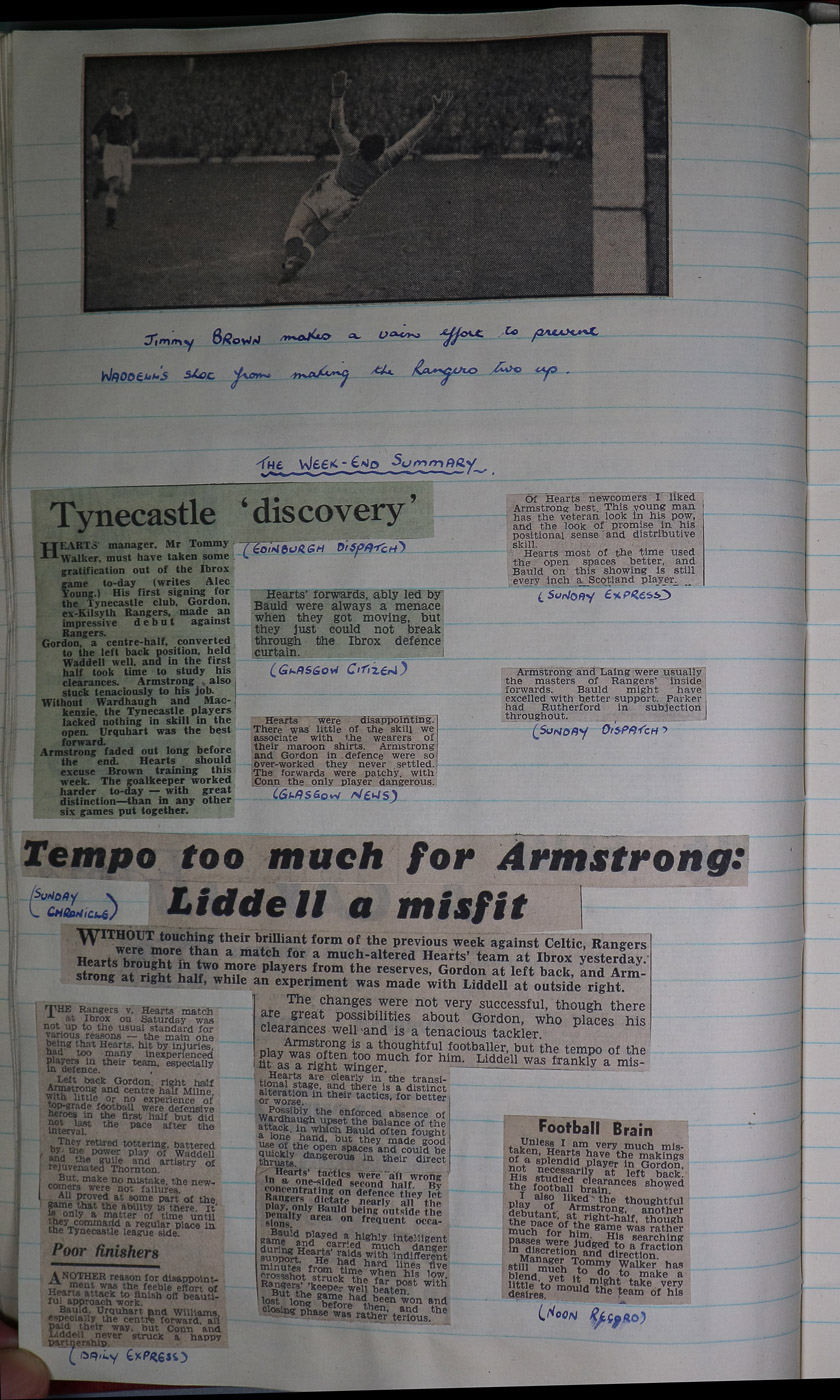 Jimmy BROWN makes a vain effort to prevent
WADDELL'S shot from making the Rangers two up.
THE WEEK-END SUMMARY.
Tynecastle 'discovery'
HEARTS' manager, Mr Tommy
Walker, must have taken some
gratification out of the Ibrox
game to-day (writes Alec
Young.) His first signing for
the Tynecastle club, Gordon,
ex-Kilsyth Rangers, made an
impressive debut against
Rangers.
Gordon, a centre-half, converted
to the left back position, held
Waddell well, and in the first
half took time to study his
clearances. Armstrong also
stuck tenaciously to his job.
Without Wardhaugh and Mac-
kenzie, the Tynecastle players
lacked nothing in skill in the
open. Urquhart was the best
forward.
Armstrong faded out long before
the end. Hearts should
excuse Brown training this
week. The goalkeeper worked
harder to-day — with great
distinction—than in any other
six games put together.
(EDINBURGH DISPATCH)
Hearts' forwards, ably led by
Bauld were always a menace
when they got moving, but
they just could not break
through the Ibrox defence
curtain.
(GLASGOW CITIZEN)
Hearts were disappointing.
There was little of the skill we
associate with the wearers of
their maroon shirts. Armstrong
and Gordon in defence were so
over-worked they never settled.
The forwards were patchy, with
Conn the only player dangerous.
(GLASGOW NEWS)
Of Hearts newcomers I liked
Armstrong best. This young man
has the veteran look in his pow,
and the look of promise in his
positional sense and distributive
skill.
Hearts most of the time used
the open spaces better, and
Bauld on this showing is still
every inch a Scotland player.
(SUNDAY EXPRESS)
Armstrong and Laing were usually
the masters of Rangers' inside
forwards. Bauld might have
excelled with better support. Parker
had Rutherford in subjection
throughout.
(SUNDAY DISPATCH)
Tempo too much for Armstrong:
Liddell a misfit
(SUNDAY
CHRONICLE)
WITHOUT touching their brilliant form of the previous week against Celtic, Rangers
were more than a match for a much-altered Hearts' team at Ibrox yesterday.
Hearts brought in two more players from the reserves, Gordon at left back, and Arm-
strong at right half, while an experiment was made with Liddell at outside right.
The changes were not very successful, though there
are great possibilities about Gordon, who places his
clearances well and is a tenacious tackler.
Armstrong is a thoughtful footballer, but the tempo of the
play was often too much for him. Liddell was frankly a mis-
fit as a right winger.
Hearts are clearly in the transi-
tional stage, and there is a distinct
alteration in their tactics, for better
or worse.
Possibly the enforced absence of
Wardhaugh upset the balance of the
attack, in which Bauld often fought
a lone hand, but they made good
use of the open spaces and could be
quickly dangerous in their direct
thrusts.
Hearts' tactics were all wrong
in a one-sided second half. By
concentrating on defence they let
Rangers dictate nearly all the
play, only Bauld being outside the
penalty area on frequent occa-
sions.
Bauld played a highly intelligent
game and carried much danger
during Hearts' raids with indifferent
support. He had hard lines five
minutes from time when his low,
crosshot struck the far post with
Rangers' 'keeper well beaten.
But the game had been won and
lost long before then, and the
closing phase was rather terious.
THE Rangers v. Hearts match
at Ibrox on Saturday was
not up to the usual standard for
various reasons — the main one
being that Hearts, hit by injuries,
had too many inexperienced
players in their team, especially
in defence.
Left back Gordon, right half
Armstrong and centre half Milne,
with little or no experience of
top-grade football were defensive
heroes in the first half but did
not last the pace after the
interval.
They retired tottering, battered
by the power play of Waddell
and the guile and artistry of
rejuvenated Thornton.
But, make no mistake, the new-
comers were not failures.
All proved at some part of the
game that the ability is there. It
is only a matter of time until
they command a regular place in
the Tynecastle league side.
Poor finishers
ANOTHER reason for disappoint-
ment was the feeble effort of
Hearts attack to finish off beauti-
ful approach work.
Bauld, Urquhart and Williams,
especially the centre forward, all
paid their way, but Conn and
Liddell never struck a happy
partnership.
(DAILY EXPRESS)
Football Brain
Unless I am very much mis-
taken, Hearts have the makings
of a splendid player in Gordon,
not necessarily at left back.
His studied clearances showed
the football brain.
I also liked the thoughtful
play of Armstrong, another
debutant, at right-half, though
the pace of the game was rather
much for him. His searching
passes were judged to a fraction
in discretion and direction.
Manager Tommy Walker has
still much to do to make a
blend, yet it might take very
little to mould the team of his
desires.
(NOON RECORD)